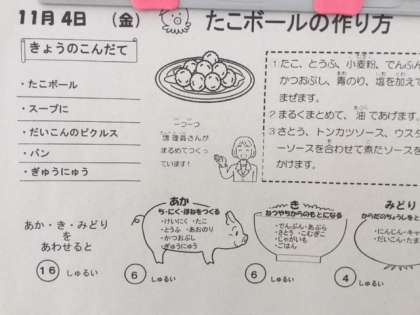 11月4日 (金)
たこボールの作り方
きょうのこんだて
・たこボール
・スープに
・だいこんのピクルス
・パン
・ぎゅうにゅう
一つ一つ
調理員さんが
まるめてつくっ
ています!
1 たこ、とうふ、小麦粉、でんぷん
かつおぶし、青のり、塩を加えて
まぜます。
2 まるくまとめて、油であげます。
3 さとう、トンカツソース、ウスタ
ーソースを合わせて煮たソースを
かけます。
あか・き・みどり
を
あわせると
16 しゅるい
あか
ち・にく・ほねをつくる
・けいにく・たこ
・とうふ・あおのり
・かつおぶし
・ぎゅうにゅう
6 しゅるい
き
ねつやちからのもとになる
・でんぷん・あぶら
・さとう・こむぎこ
・じゃがいも
・ごはん
6 しゅるい
みどり
からだのちょうしをと
・にんじん・キャ
・だいこん・たま
4 しゅるい